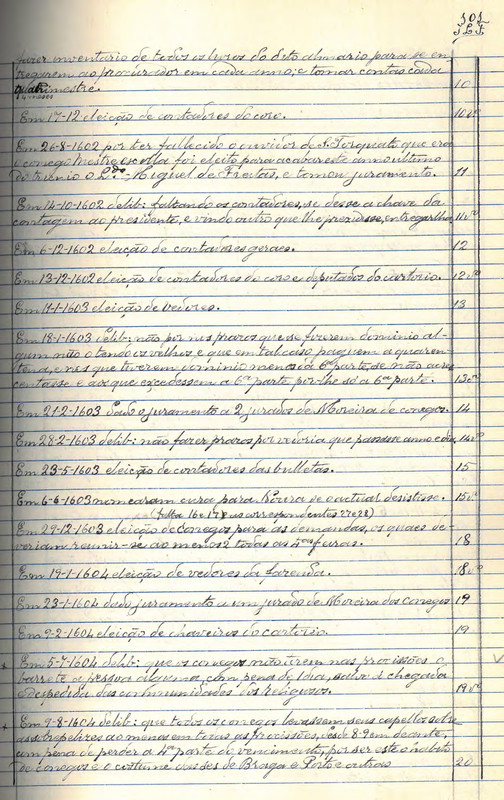 101
fazer inventario de todos os livros do dito almario para se en-
tregarem ao procurador em cada anno, e tomar contas cada
quadrimestre. 10
Em 17-12 eleição de contadores do coro. 10 vº
Em 26-8-1602 por ter fallecido o ouvidor de S. Torquato que era
o conego mestre escolla foi eleito para acabar este anno ultimo
do triennio o Ldo Miguel de Freitas, e tomou juramento. 11
Em 14-10-1602 delib: faltando os contadores, se desse a chave da
contagem ao presidente, e vindo outro que lhe prezidisse, entregarlha 11 vº
Em 6-12-1602 eleição de contadores geraes. 12
Em 13-12-1602 eleição de contadores do coro e deputados do cartorio. 12 vº
Em 11-1-1603 eleição de vedores. 13
Em 18-1-1603 delib: não por nos prazos que se fizerem dominio al-
gum não o tendo os velhos, e que em tal caso paguem a quaren-
tena, e nos que tiverem dominio menos da 6ª parte, se não acres-
centasse e aos que excedessem a 6ª parte, pôr-lhe só a 6ª parte. 13 vº
Em 21-2-1603 dado o juramento a 2 jurados de Moreira de conegos. 14
Em 28-2-1603 delib: não fazer prazos por vedoria que passasse anno e dia. 14 vº
Em 23-5-1603 eleição de contadores das bulletas. 15
Em 6-6-1603 nomearam cura para se o actual desistisse. 15 vº
(falta 16 e 17 e os correspondentes 27 e 28)
Em 29-12-1603 eleição de conegos para as demandas, os quaes de-
veriam reunir-se ao menos 2 todas as 4as feiras. 18
Em 19-1-1604 eleição de vedores da fazenda. 18 vº
Em 23-1-1604 dado juramento a um jurado de Moreira dos Conegos 19
Em 9-2-1604 eleição de chaveiros do cartorio. 19
Em 5-7-1604 delib: que os conegos não tirem nas procissões o
barrete a pessoa alguma, com pena de 1 dia, salvo á chegada
e despedida das communidades dos religiosos. 19 vº
Em 9-8-1604 delib: que todos os conegos levassem seus capellos sobre
as sobrepelizes ao menos em todas as procissões, desde 8-9 em deante,
com pena de perder a 4ª parte do vencimento, por ser este o habito
de conegos e o costume das Sés de Braga e Porto e outras 20